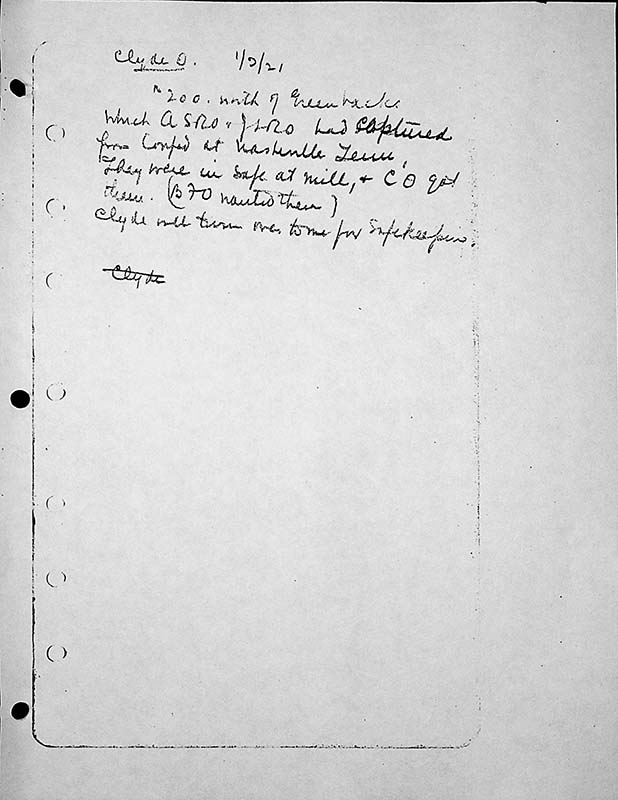 Clyde O. 1/3/21
$200. worth of Greenbacks
which A SRO & J LRO had captured
from Confed at Nashville Tenn,
They were in safe at mill, & C O got
them. (B FO wanted them)
Clyde will turn over to me for Safekeeping.
Clyde